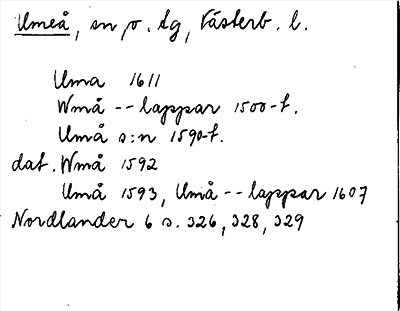 Umeå, sn o. tg, Västerb. l.
Uma 1611
Wmå -- lappar 1500-t.
Umå s:n 1590-t.
dat. Wmå 1592
Umå 1593, Umå -- lappar 1607
Nordlander 6 s. 326, 328, 329